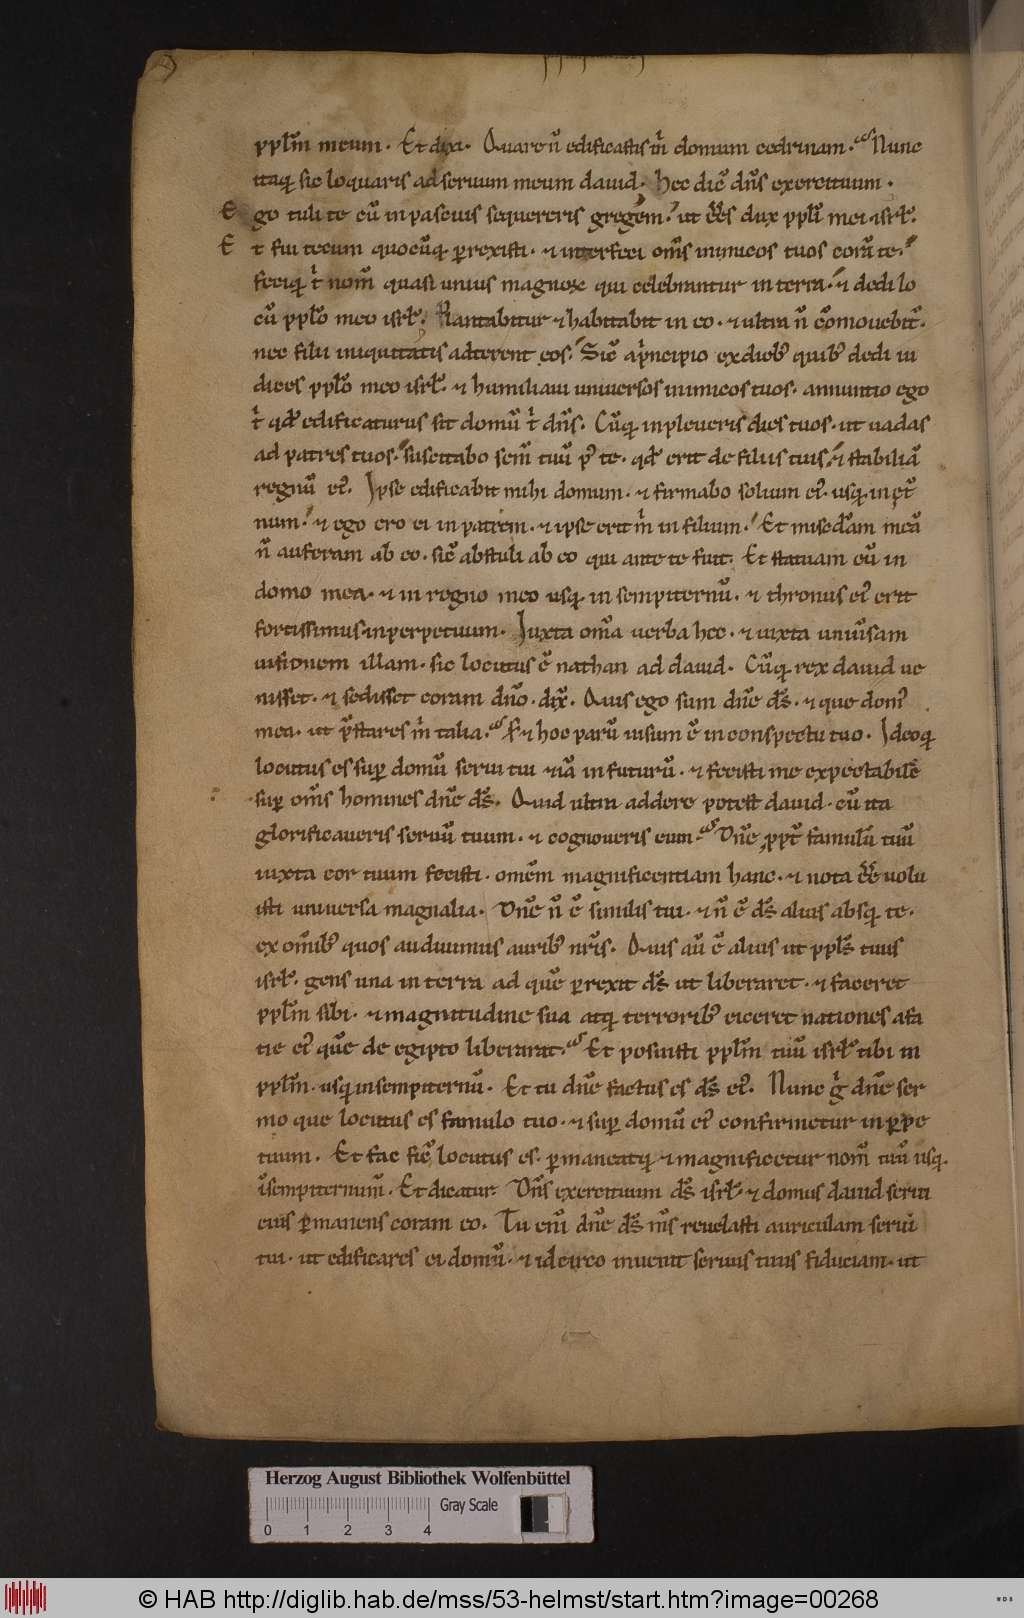 pplm̄ meum. Et dixi. Quare n̄ edificastis m̄ domum cedrinam. Nunc
itaq; sic loquaris ad seruum meum dauid. Hec dic̄ dn̄s exercituum.
Ego tuli te cū in pascuis sequereris gregem. ut ēēs dux ppl̄i mei isrl̄.
Et fui tecum quocūq; perrexisti. ⁊ interfeci om̄s inimicos tuos corā te.
feciq; t̄ nom̄ quasi unius magnoꝝ qui celebrantur in terra. ⁊ dedi lo
cū ppl̄o meo isrl̄. Plantabitur ⁊ habitabit in eo. ⁊ ultra n̄ cōmouebit̄.
nec filii iniquitatis adterent eos. Sic̄ a p̄ncipio ex dieb; quib; dedi iu
dices ppl̄o meo isrl̄. ⁊ humiliaui uniuersos inimicos tuos. annuntio ego
t̄ qd̄ edificaturus sit domū t̄ dn̄s. Cūq; inpleueris dies tuos. ut uadas
ad patres tuos. suscitabo sem̄ tuū p̄ te. qd̄ erit de filiis tuis. ⁊ stabiliā
regnū ei᷒. Ipse edificabit mihi domum. ⁊ firmabo solium ei᷒. usq; in et̄
num. ⁊ ego ero ei in patrem. ⁊ ipse erit m̄ in filium. Et misedām meā
n̄ auferam ab eo. sic̄ abstuli ab eo qui ante te fuit. Et statuam eū in
domo mea. ⁊ in regno meo usq; in sempiternū. ⁊ thronus ei᷒ erit
fortissimus in perpetuum. Iuxta om̄a uerba hec. ⁊ iuxta uniūsam
uisionem illam. sic locutus ē nathan ad dauid. Cūq; rex dauid ue
nisset. ⁊ sedisset coram dn̄o. dix̄. Quis ego sum dn̄e ds̄. ⁊ que dom᷒
mea. ut p̄stares m̄ talia. S; ⁊ hoc parū uisum ē in conspectu tuo. Ideoq;
locutus es sup domū serui tui ⁊iā in futurū. ⁊ fecisti me expectabilē
sup om̄s homines dn̄e ds̄. Quid ultra addere potest dauid. cū ita
glorificaueris seruū tuum. ⁊ cognoueris eum. Dn̄e ppt̄ famulū tuū
iuxta cor tuum fecisti. omēm magnificentiam hanc. ⁊ nota ēē uolu
isti uniuersa magnalia. Dn̄e n̄ ē similis tui. ⁊ n̄ ē ds̄ alius absq; te.
ex om̄ib; quos audiuimus aurib; nr̄is. Quis aū ē alius ut ppl̄s tuus
isrl̄. gens una in terra ad quē perrexit ds̄ ut liberaret. ⁊ faceret
pplm̄ sibi. ⁊ magnitudine sua atq; terrorib; eiceret nationes a fa
cie ei᷒ quē de egipto liberarat. Et posuisti pplm̄ tuū isrl̄ tibi in
pplm̄. usq; in sempiternū. Et tu dn̄e factus es ds̄ ei᷒. Nunc ḡ dn̄e ser
mo que locutus es famulo tuo. ⁊ sup domū ei᷒ confirmetur in ꝑpe
tuum. Et fac sic̄ locutus es. ꝑmaneatq; ⁊ magnificetur nom̄ tuū usq;
īsempiternum̄. Et dicatur. Dn̄s exercituum ds̄ isrl̄. ⁊ domus dauid serui
eius ꝑmanens coram eo. Tu enī dn̄e ds̄ ms̄ reuelasti auriculam serui
tui. ut edificares ei domū. ⁊ idcirco inuenit seruus tuus fiduciam. ut
Herzog August Bibliothek Wolfenbüttel
Gray Scale
0 1 2 3 4
© HAB http://diglib.hab.de/mss/53-helmst/start.htm?image=00268